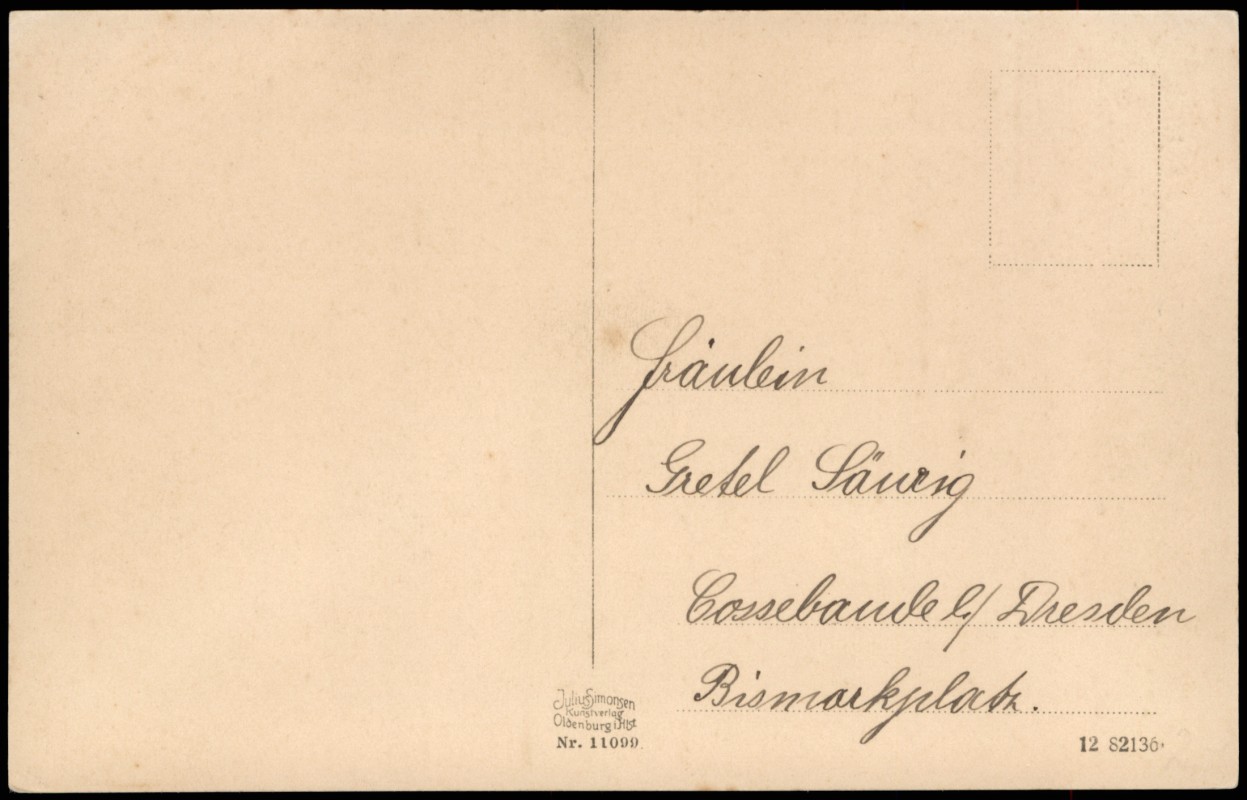 Fräulein
Gretel Säurig
Cossebaude b/ Dresden
Bismarkplatz.
Julius Simonsen
Kunstverlag
Oldenburg i/Hlst
Nr. 11099
12 82136